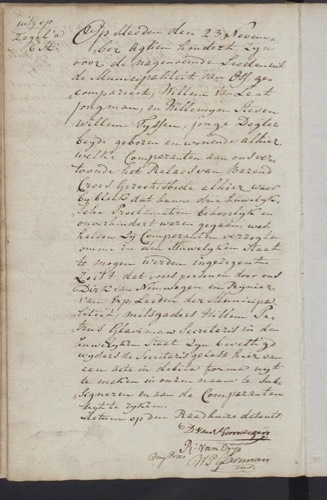 uitg op
Zegel a
6 st:
Op Heeden den 23 Novem-
ber agtien hondert, Zyn
voor de nagenoemde Leeden uit
de Municipaliteit van Oss ge-
compareert, Willem van
jongman, en Willemyn
Willem Tyssen, jonge Dogter
beyde geboren en wonende alhier
welke Comparanten aan ons ver-
toonde het Relaas van Barend
Croes Gerechtsbode alhier waar
by bleek dat hunne drie huwelyk-
sche Proclamatien behoorlyk en
onverhindert waren gegaan, wes
halven zy Comparanten verzogten
omme in den Huwelyken Staat
te mogen werden ingezegent
Zo ist dat voors personen door ons
Dirk van Nunwegen en Reynier
van Erp Leeden der Municipa-
liteit, mitsgaders Willem Pe-
trus Glavimans Secretaris in den
huwelyken Staat Zyn bevestigd
wyders de Secretaris gelast hier van
een acte in debita forma uyt
te maken in onzen naam te Sub-
signeren en aan de Comparanten
uyt te ryken.
Actum op den Raadhuize datum ut
D. van Nunwegen
R: van Erp
W P Glavimans